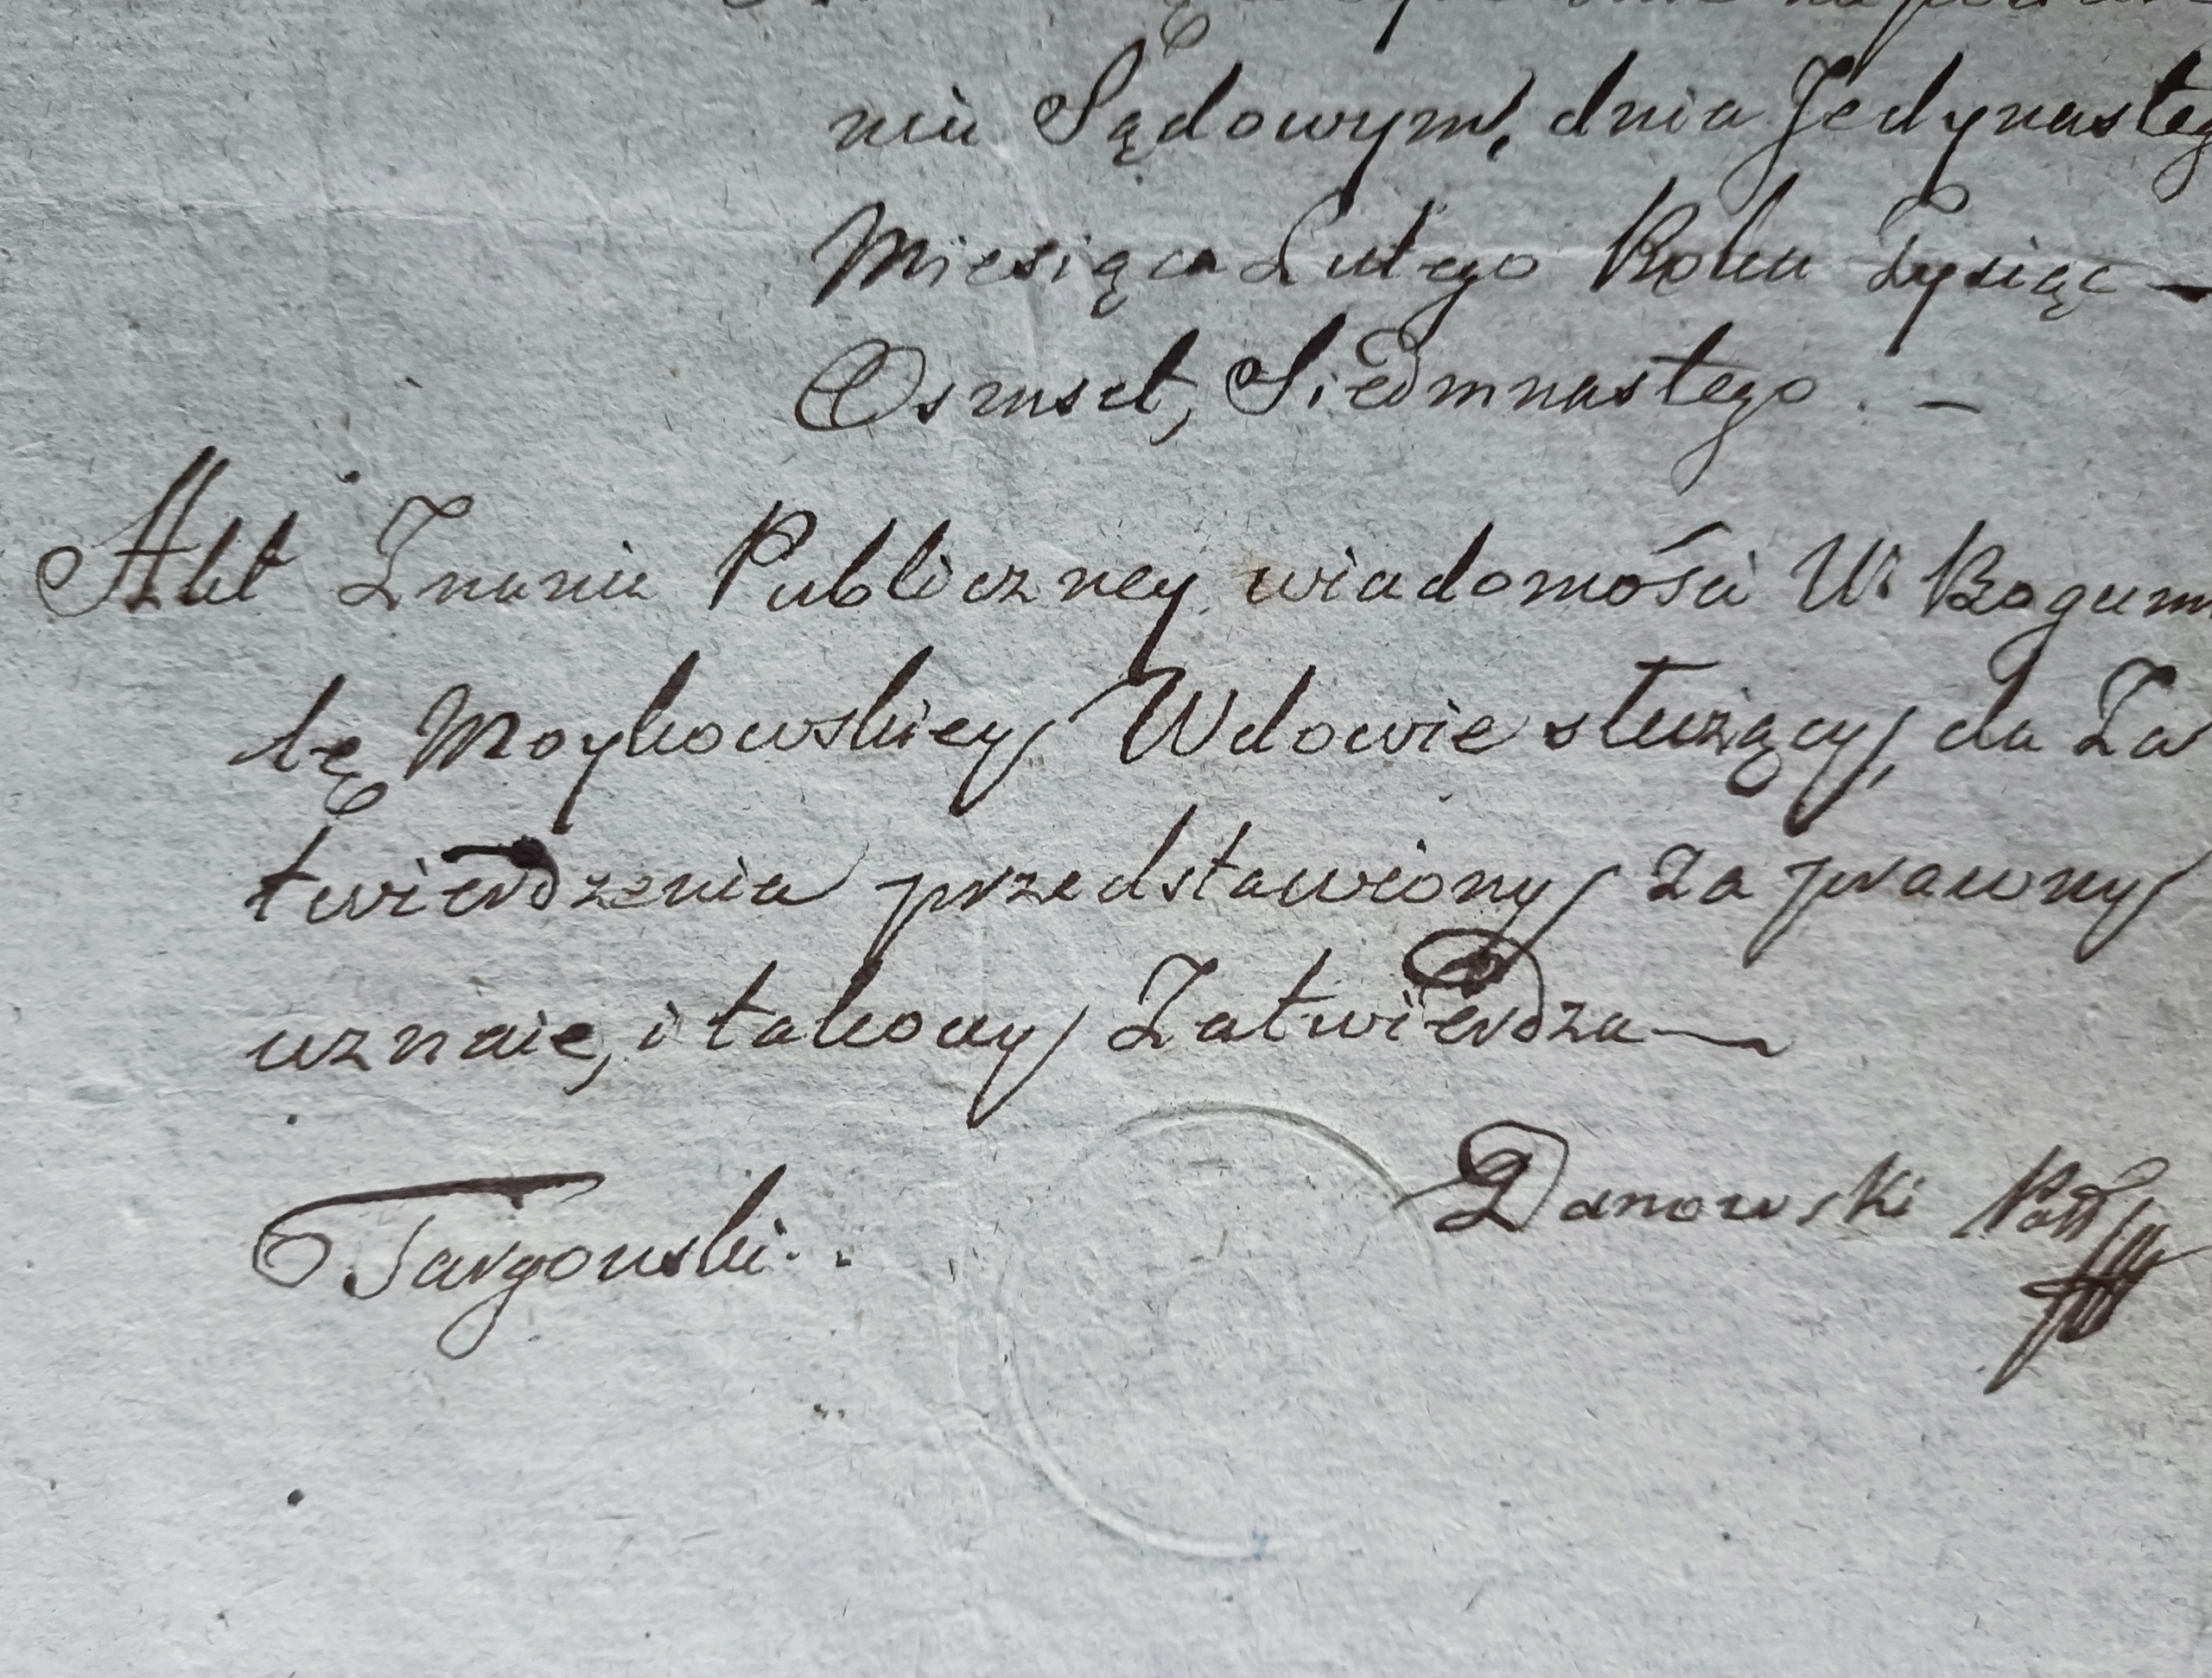 niu Sądowym, dnia Jedynasteg
Miesiąca Lutego Roku Tysiąc —
Osmset, Siedmnastego. —
Akt Znania Publiczney wiadomości W. Bogum
łę Moykowskiey Wdowie służący, do Za
twierdzenia przedstawiony za prawny
uznaie, i takowy Zatwierdza —
Danowski
Targowski.